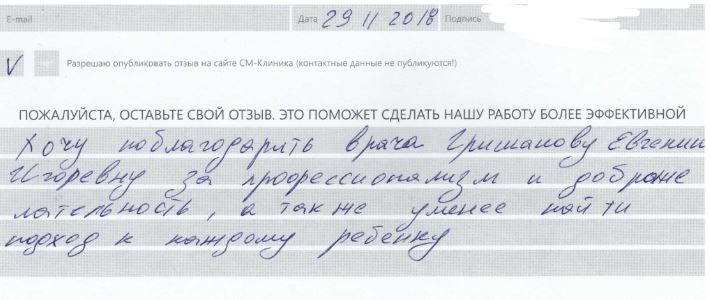 E-mail Дата 29 11 2018 Подпись
V Разрешаю опубликовать отзыв на сайте СМ-Клиника (контактные данные не публикуются!)
ПОЖАЛУЙСТА, ОСТАВЬТЕ СВОЙ ОТЗЫВ. ЭТО ПОМОЖЕТ СДЕЛАТЬ НАШУ РАБОТУ БОЛЕЕ ЭФФЕКТИВНОЙ
Хочу поблагодарить врача Гришанову Евгению
Игоревну за профессионализм и доброже
лательность, а также умение найти
подход к каждому ребенку